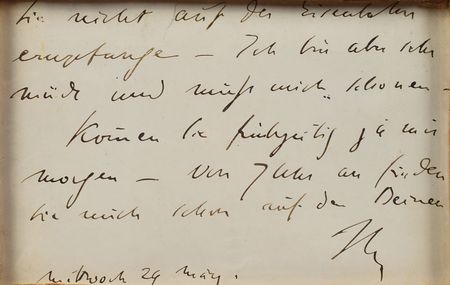 Sie nicht auf der Eisenbahn
empfange – Ich bin aber sehr
müde und muß mich schonen –
Kommen Sie frühzeitig zu mir
morgen – Von 7 Uhr an finden
Sie mich schon auf den Beinen
Mittwoch 29 März.